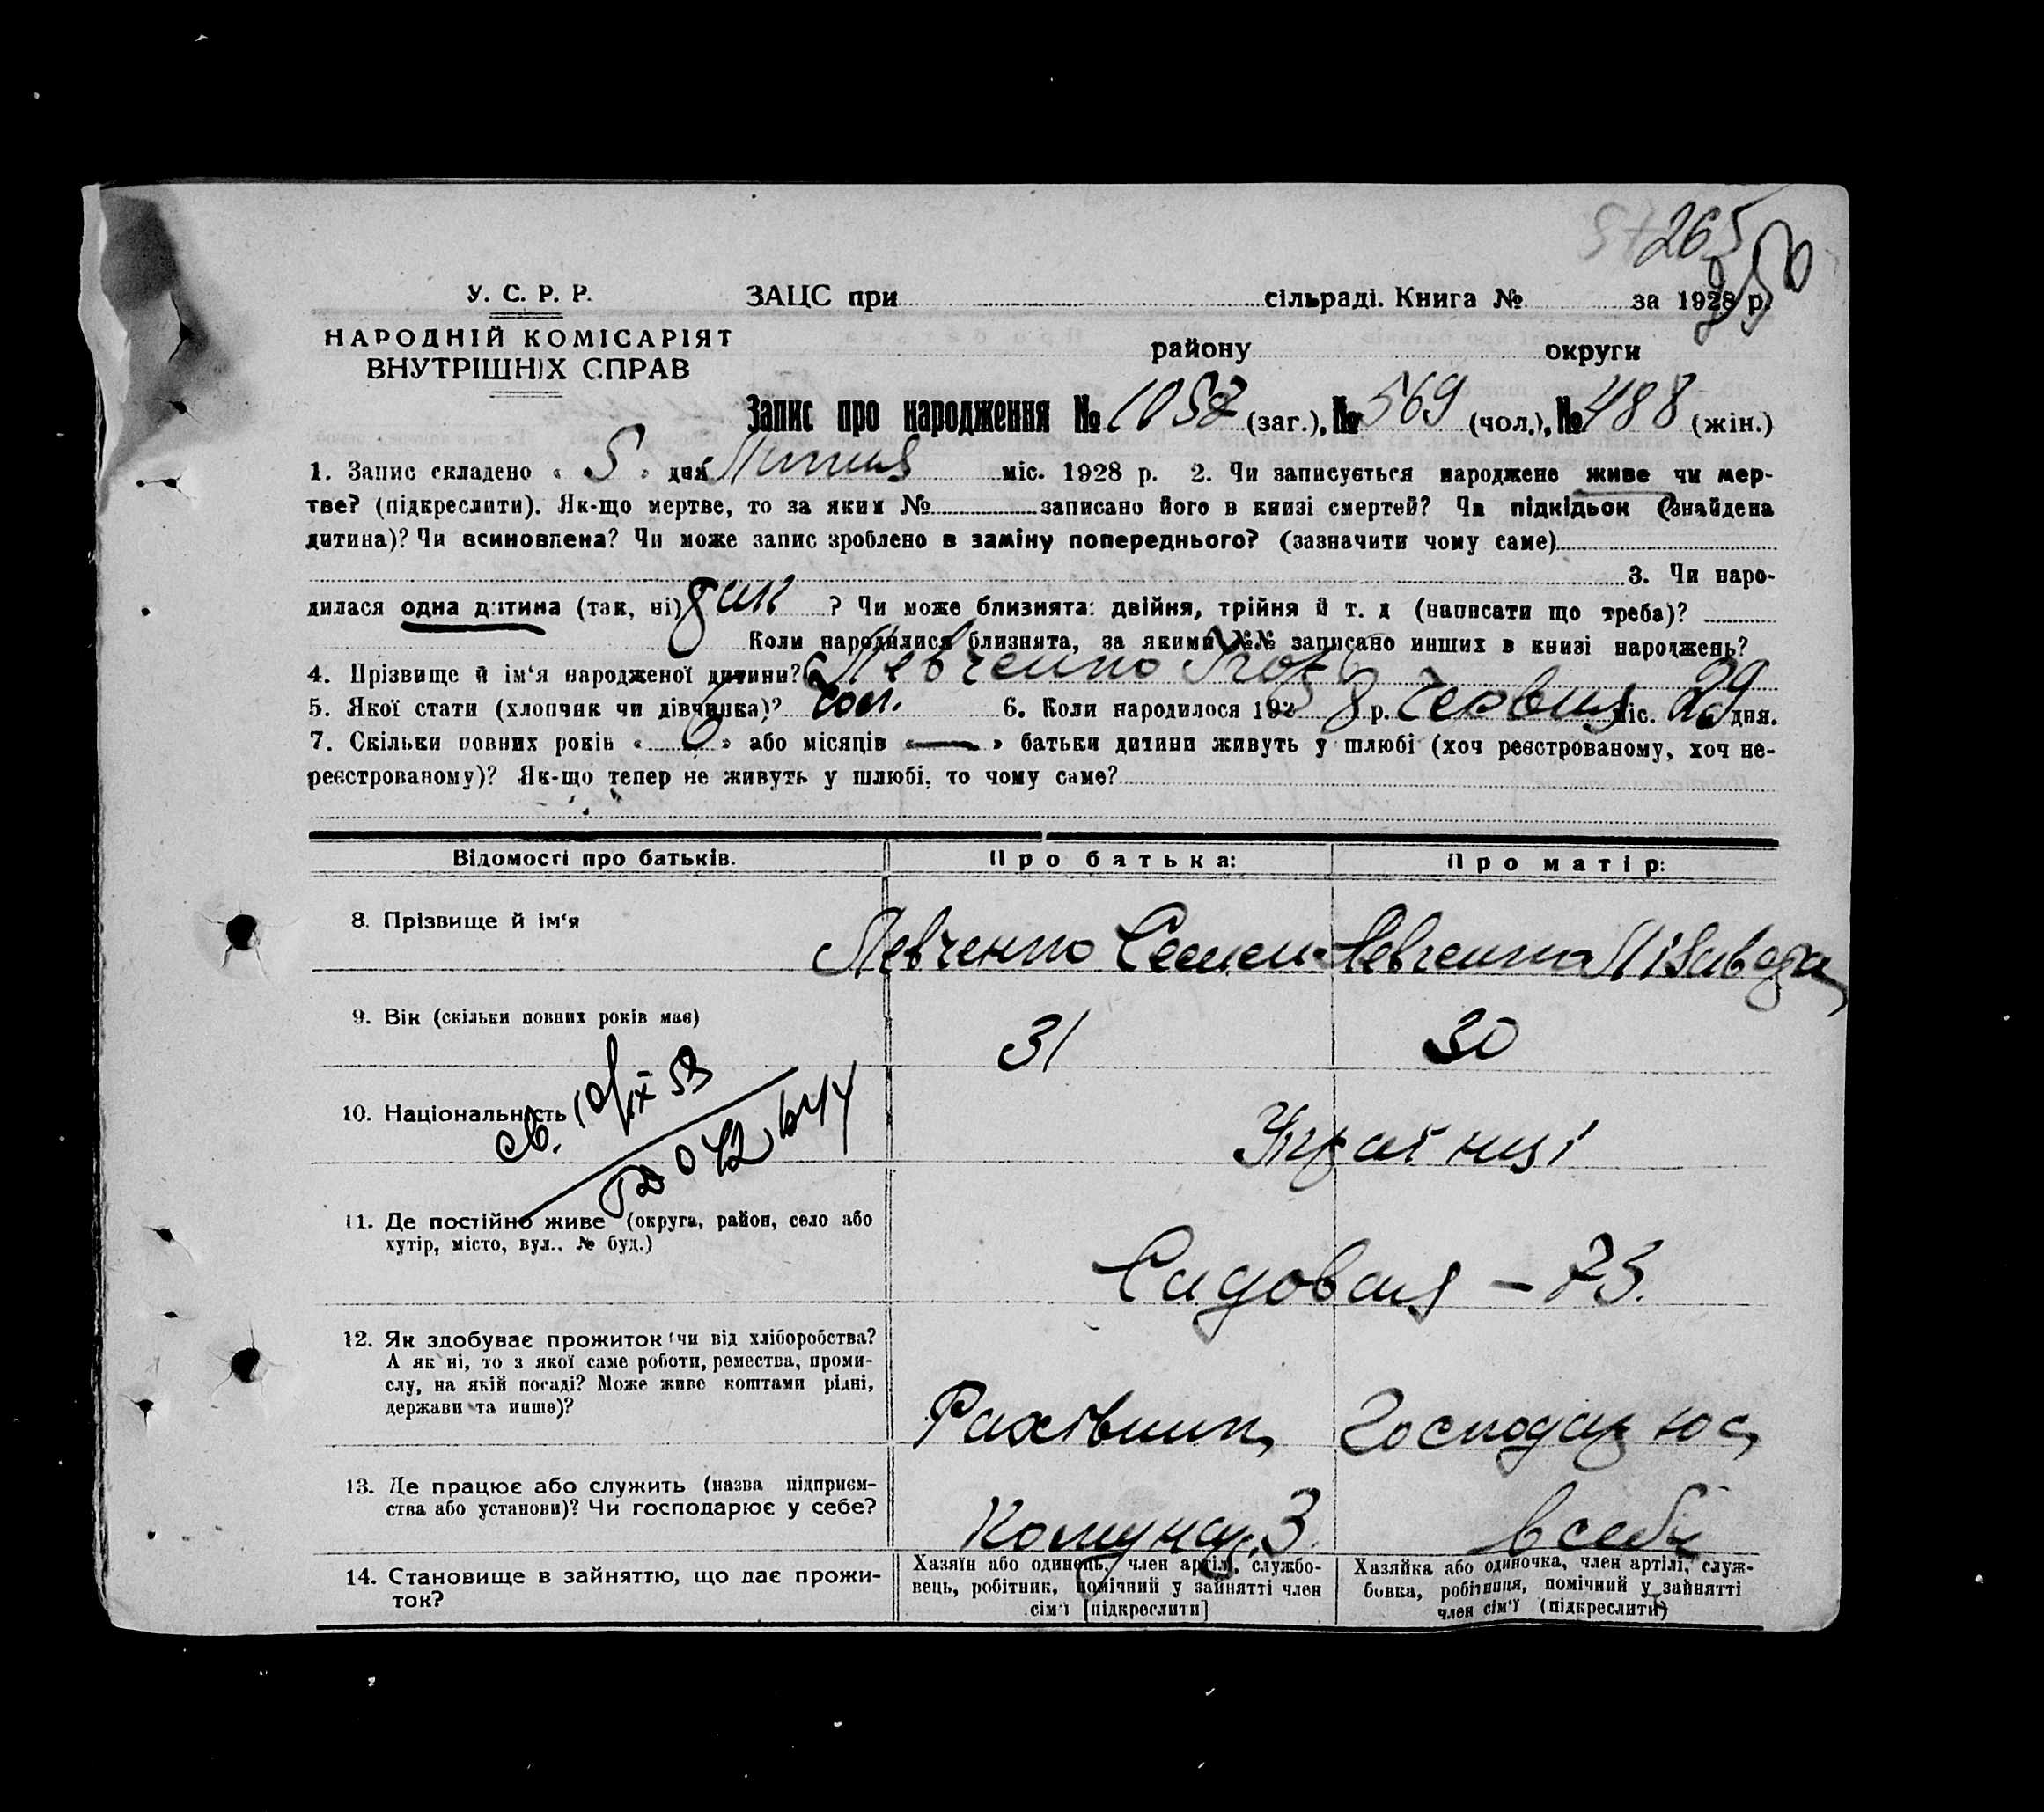 265
У. С. Р. Р.
ЗАЦС при сільраді. Книга № за 1928 р.
НАРОДНІЙ КОМІСАРІЯТ
ВНУТРІШНІХ СПРАВ
району округи
Запис про народження № 1057 (заг.), № 569 (чол.), № 488 (жін.)
1. Запис складено « 5 » дня Липня міс. 1928 р. 2. Чи записується народжене живе чи мер-
тве? (підкреслити). Як-що мертве, то за яким № записано його в книзі смертей? Чи підкідьок (знайдена
дитина)? Чи всиновлена? Чи може запис зроблено в заміну попереднього? (зазначити чому саме)
3. Чи наро-
дилася одна дитина (так, ні) так ? Чи може близнята: двійня, трійня й т. д (написати що треба)?
Коли народилися близнята, за якими №№ записано инших в книзі народжень?
4. Прізвище й ім‘я народженої дитини? Левченко Ігор
5. Якої стати (хлопчик чи дівчинка)? чол. 6. Коли народилося 1928 р. Червня міс. 29 дня.
7. Скільки повних років « 6 » або місяців « — » батьки дитини живуть у шлюбі (хоч реєстрованому, хоч не-
реєстрованому)? Як-що тепер не живуть у шлюбі, то чому саме?
Відомості про батьків. Про батька: Про матір:
8. Прізвище й ім‘я Левченко Семен Левченко Лізавета
9. Вік (скільки повних років має) 31 30
10. Національність Українці
св. 10/IX 53
042644
11. Де постійно живе (округа, район, село або
хутір, місто, вул., № буд.)
Садовая – 73.
12. Як здобуває прожиток (чи від хліборобства?
А як ні, то з якої саме роботи, ремества, проми-
слу, на якій посаді? Може живе коштами рідні,
держави та инше)?
Рахівник Господарює
13. Де працює або служить (назва підприєм-
ства або установи)? Чи господарює у себе?
в себе
14. Становище в зайняттю, що дає прожи-
ток?
Хазяїн або одинець, член артілі, службо-
вець, робітник, помічний у зайнятті член
сім‘ї [підкреслити]
Хазяйка або одиночка, член артілі, служ-
бовка, робітниця, помічний у зайнятті
член сім‘ї (підкреслити)